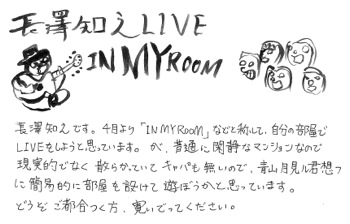 長澤知之LIVE
IN MY ROOM
長澤知之です。4月より「IN MY ROOM」などと称して、自分の部屋で
LIVEをしようと思っています。が、普通に閑静なマンションなので
現実的でなく 散らかっていてキャパも無いので、青山月見ル君想フ
に簡易的に部屋を設けて遊ぼうかと思っています。
どうぞ ご都合つく方、寛いでってください。